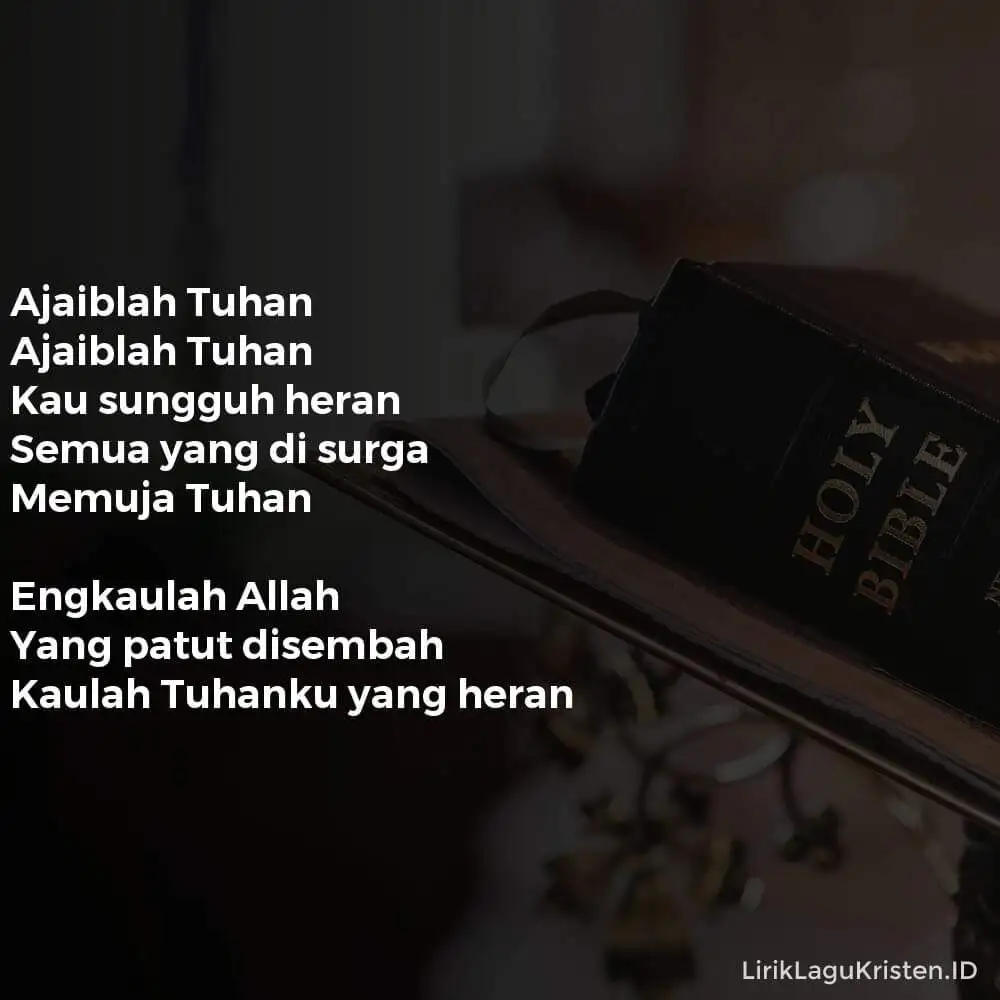 Ajaiblah Tuhan
Ajaiblah Tuhan
Kau sungguh heran
Semua yang di surga
Memuja Tuhan
Engkaulah Allah
Yang patut disembah
Kaulah Tuhanku yang heran
HOLY
BIBLE
LirikLaguKristen.ID